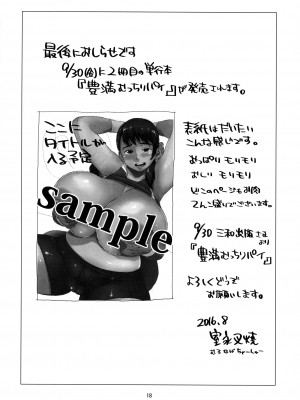 最後におしらせです
9/30(金)に2冊目の単行本
『豊満むっちりパイ』が発売されます。
ここに
タイトルが
入る予定
sample
表紙はだいたい
こんな感じです。
おっぱいモリモリ
おしりモリモリ
どこのページもお肉
てんこ盛りでございます。
9/30 三和出版さま
より
『豊満むっちりパイ』
よろしくどうぞ
お願いします。
2016.8
18